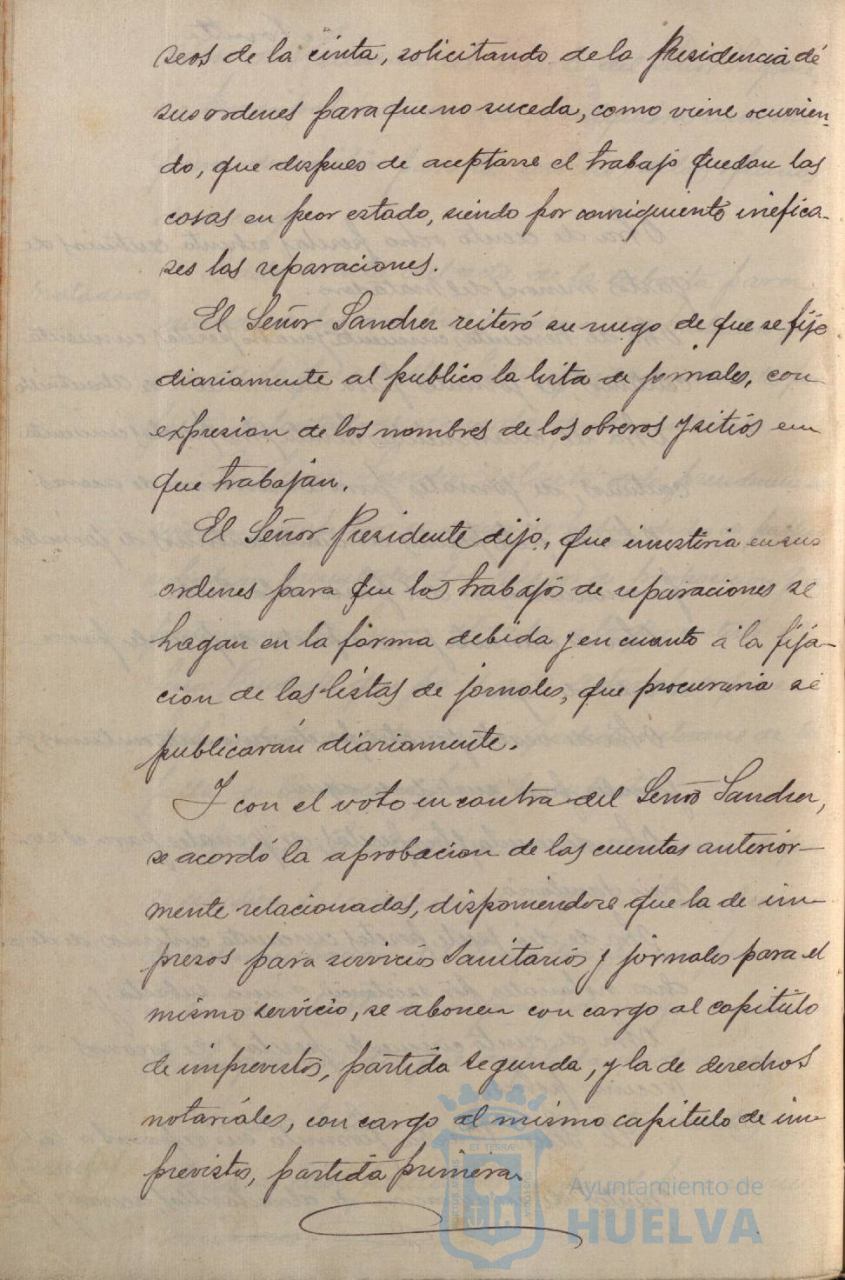 seos de la cinta, solicitando de la Presidencia dé
sus ordenes para que no suceda, como viene ocurrien-
do, que despues de aceptarse el trabajo quedan las
cosas en peor estado, siendo por consiguiento inefica-
ses las reparaciones.
El Señor Sanchez reiteró su ruego de que se fije
diariamente al publico la lista de jornales, con
expresion de los nombres de los obreros y sitios en
que trabajan.
El Señor Presidente dijo, que insistiria en sus
ordenes para que los trabajos de reparaciones se
hagan en la forma debida y en cuanto á la fija-
cion de las listas de jornales, que procuraria se
publicarán diariamente.
Y con el voto en contra del Señor Sanchez,
se acordó la aprobacion de las cuentas anterior-
mente relacionadas, disponiendose que la de im-
presos para servicios Sanitarios y jornales para el
mismo servicio, se abonen con cargo al capitulo
de imprevistos, partida segunda, y la de derechos
notariales, con cargo al mismo capitulo de im-
previstos, partida primera.
Ayuntamiento de
HUELVA